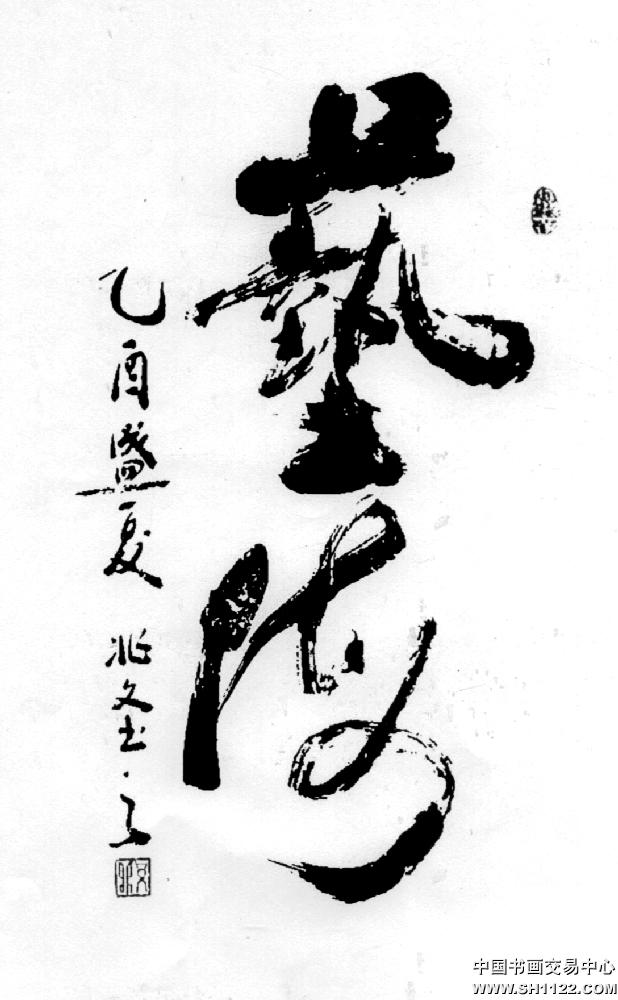 藝海
乙酉盛夏 兆文
中国书画交易中心
www.SH1122.COM